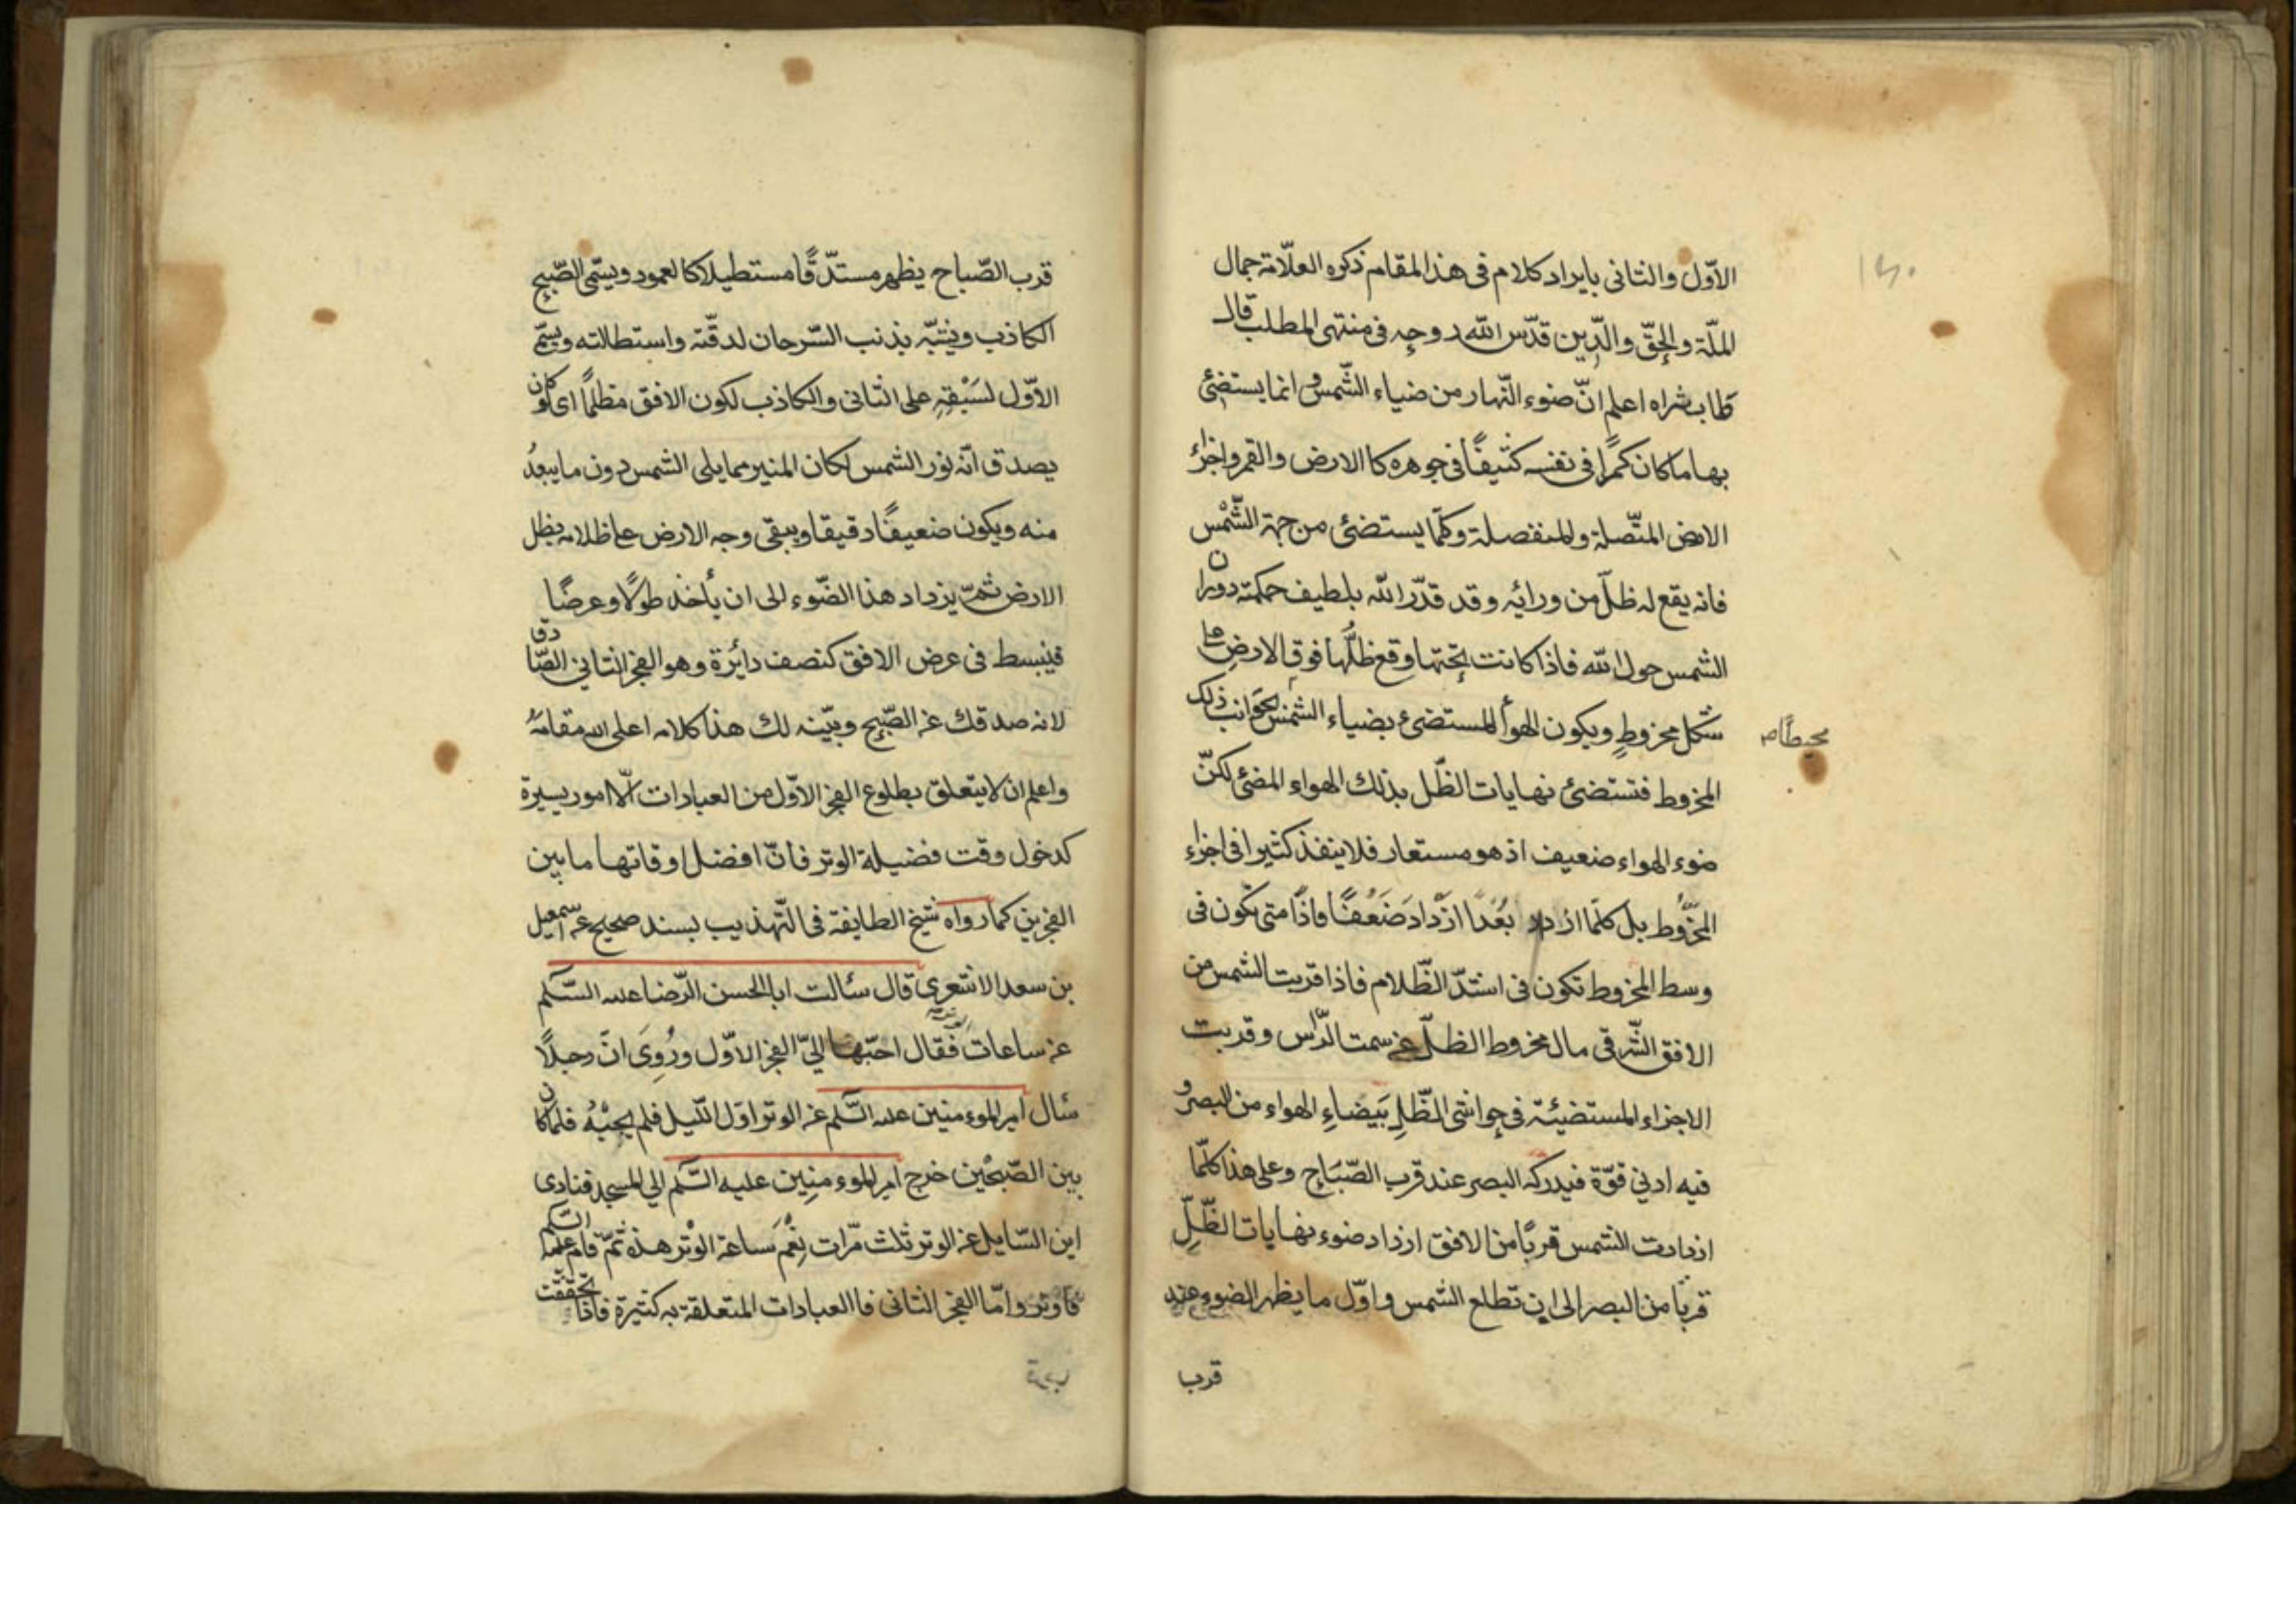 الاوّل والثانى بايراد كلام فى هذا المقام ذكره العلّامة جمال
الملّة والحقّ والدّين قدّس الله روحه فى منتهى المطلب قال
طاب ثراه اعلم انّ ضوء النّهار من ضياء الشّمس وانما يستضئ
بها ما كان كمرًا فى نفسه كثيفًا فى جوهره كالارض والقمر واجزاء
الارض المتّصلة والمنفصلة وكلّما يستضئ من جهة الشّمْس
فانه يقع له ظلّ من ورائِه وقد قدّر الله بلطيف حكمته دوران
الشمس حول الله فاذا كانت تحتها وقع ظلّها فوق الارض على
شكل مخروطٍ ويكون الهوأ المستضئ بضياء الشمس لجوانب ذلك
محيطًا ص
المخروط فتستضئ نهايات الظّل بذلك الهواء المضئ لكنّ
ضوء الهواء ضعيف اذ هو مستعار فلا ينفذ كثيرا فى اجزاء
المخرُوط بل كلّما ازداد بُعْدًا ازْدادَ ضَعُفًا فاذًا متى تكون فى
وسط المخروط تكون فى اشدّ الظّلام فاذا قربت الشمس من
الافق الشّرقى مال مخروط الظلّ عن سمت الرّاس وقربت
الاجزاء المستضيئة فى حواشى الظّلِ بَيضاءِ الهواء من البصر و
فيه ادنى قوّة فيدركه البصر عند قرب الصّبَاح وعلى هذا كلّما
ازدادت الشمس قربًا من الافق ازداد ضوء نهايات الظّلِّ
قربا من البصر الى ان تطلع الشمس واوّل ما يظهر الضوء عند
قرب
قرب الصّباح يظهر مستدّقًا مستطيلا كالعمود ويسمّى الصّبح
الكاذب ويشبّه بذنب السّرحان لدقّته واستطالته ويسمّى
الاوّل لسَبْقِهِ على الثانى والكاذب لكون الافق مظلمًا اى لو كان
يصدق انّه نور الشمس لكان المنير مما يلى الشمس دون ما يبعدُ
منه ويكون ضعيفًا دقيقا ويبقى وجه الارض على ظلامه بظل
الارض ثمّ يزداد هذا الضّوء الى ان يأخذ طولًا وعرضًا
فينبسط فى عرض الافق كنصف دائرة وهو الفجر الثاني الصّادق
لانه صدقك عن الصّبح وبيّنه لك هذا كلامه اعلى الله مقامهُ
واعلم ان لا يتعلق بطلوع الفجر الاوّل من العبادات الّا امور يسيرة
كدخول وقت فضيلة الوتر فانّ افضل اوقاتها ما بين
الفجرين كما رواه شيخ الطايفة فى التّهذيب بسند صحيح عن اسمعيل
بن سعد الاشعرى قال سئالت ابا الحسن الرّضا عليه السّلم
عن ساعات فقال احبّها اليّ الفجر الاوّل ورُوِىَ انّ رجلًا
سئال امير الموءمنين عليه السّلم عن الوتر اوّل اللّيل فلم يجبْهُ فلما كان
بين الصّبحَين خرج امير الموءمنِين عليه السّلم الي المسجد فنادى
اين السّايل عن الوتر ثلث مرّات نِعْمَ ساعة الوتر هذه ثمّ قام عليه السلم
فاوتر وامّا الفجر الثانى فاالعبادات المتعلقة به كثيرة فاذا تحققت